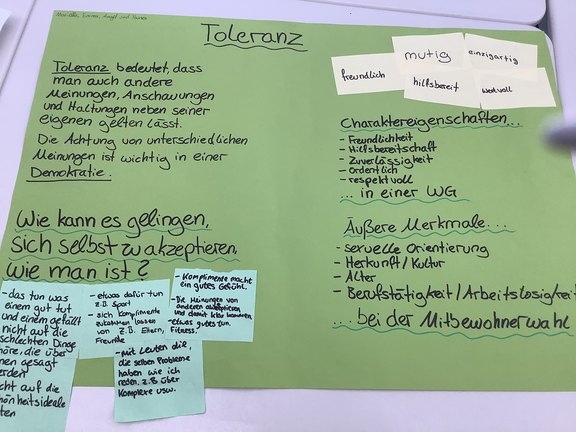 Toleranz
Toleranz bedeutet, dass
man auch andere
Meinungen, Anschauungen
und Haltungen neben seiner
eigenen gelten lässt.
Die Achtung von unterschiedlichen
Meinungen ist wichtig in einer
Demokratie.
Wie kann es gelingen,
sich selbst zu akzeptieren,
wie man ist?
- das tun was
einem gut tut
und einem gefällt
nicht auf die
schlechten Dinge
die über
gesagt
auf die
- etwas dafür tun
z.B. Sport
- sich komplimente
zukommen lassen
von z.B. Eltern,
Freunde
- Komplimente macht
ein gutes Gefühl.
- Die Meinungen von
anderen akzeptieren
und damit klar kommen.
- etwas gutes tun.
Fitness.
- mit Leuten die,
die selben Probleme
haben wie ich
reden. z.B über
Komplexe usw.
freundlich
mutig
einzigartig
hilfsbereit
wertvoll
Charaktereigenschaften...
- Freundlichkeit
- Hilfsbereitschaft
- Zuverlässigkeit
- ordentlich
- respektvoll
... in einer WG
Äußere Merkmale...
- sexuelle Orientierung
- Herkunft / Kultur
- Alter
- Berufstätigkeit / Arbeitslosigkeit
... bei der Mitbewohnerwahl